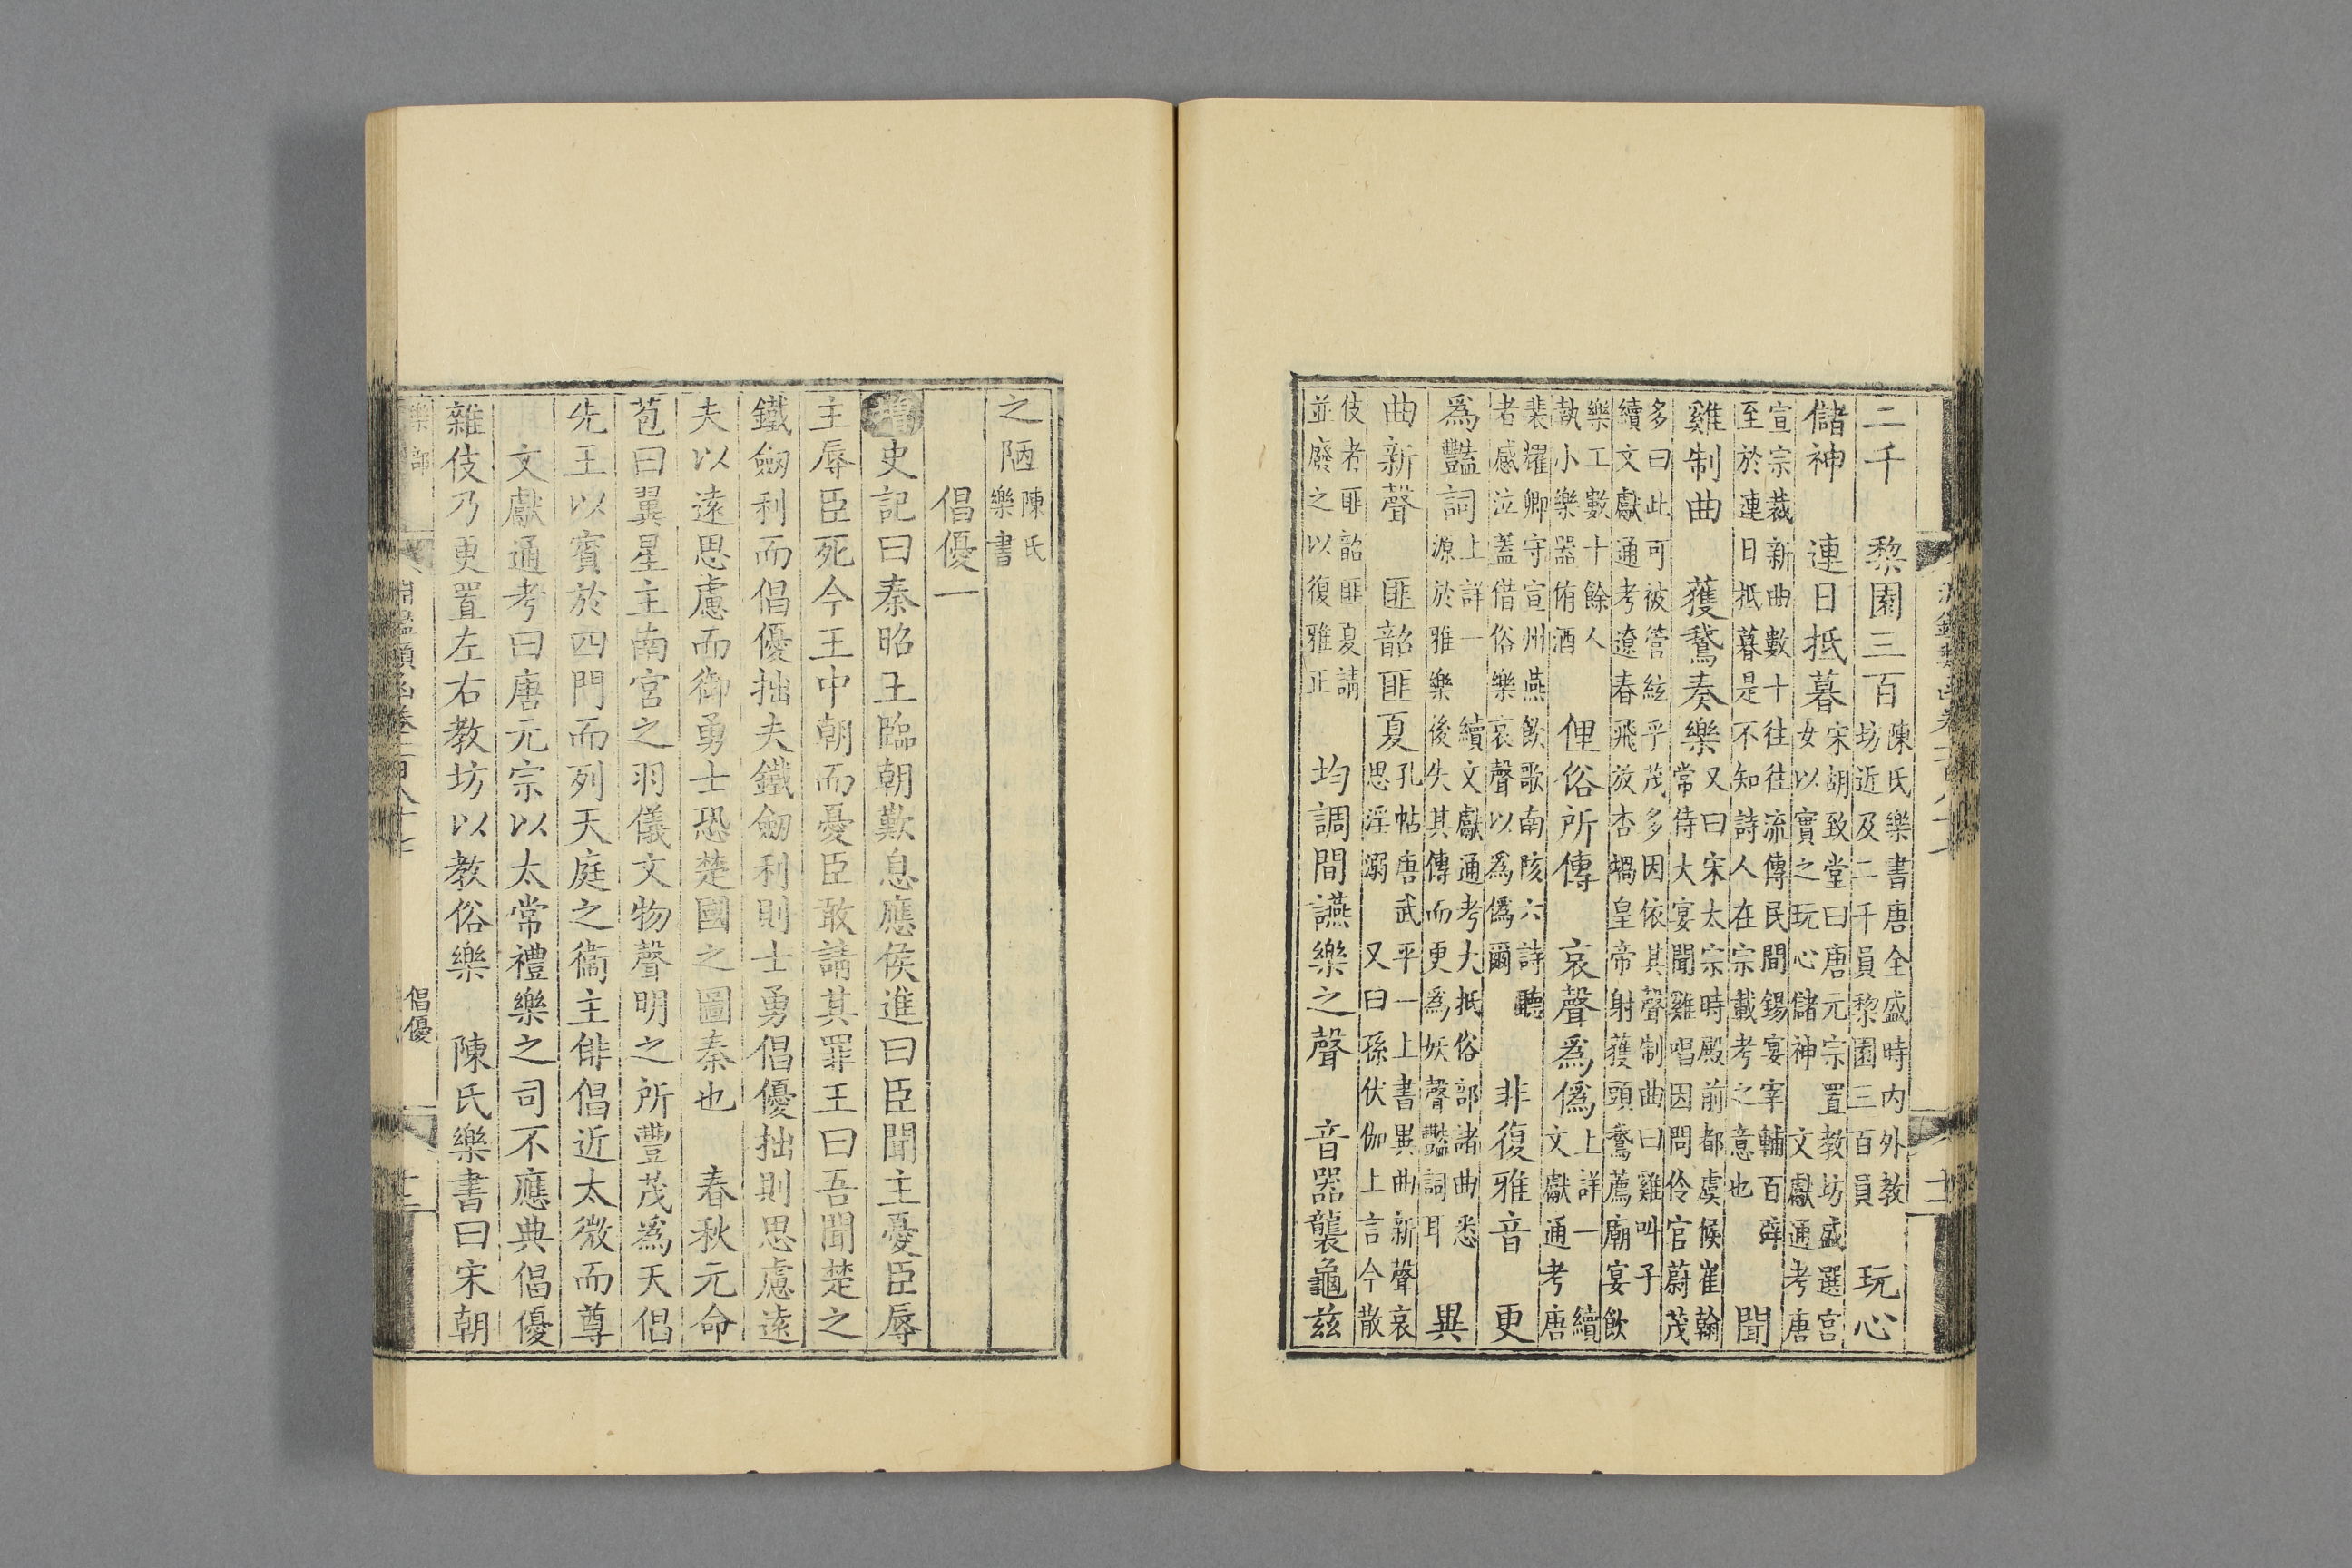 二千　黎園三百陳氏樂書唐全盛時内外教坊近及二千員黎園三百員　玩心
儲神　連日抵暮宋胡致堂曰唐元宗置教坊盛選宮女以實之玩心儲神　文獻通考唐
宣宗裁新曲數十往往流傳民間錫宴宰輔百辟至於連日抵暮是不知詩人在宗載考之意也　聞
雞制曲　獲鵞奏樂又曰宋太宗時殿前都虞候崔翰常侍大宴聞雞唱因問伶官蔚茂
多曰此可被管絃乎茂多因依其聲制曲曰雞叫子續文獻通考遼春飛放杏堝皇帝射獲頭鵞薦廟宴飲
樂工數十餘人執小樂器侑酒　俚俗所傳　哀聲爲僞上詳一　續文獻通考唐
裴耀卿守宣州燕飲歌南陔六詩聽者感泣蓋借俗樂哀聲以爲僞爾　非復雅音　更
爲豔詞上詳一　續文獻通考大抵俗部諸曲悉源於雅樂後失其傳而更爲妖聲豔詞耳　異
曲新聲　匪韶匪夏孔帖唐武平一上書異曲新聲哀思淫溺　又曰孫伏伽上言今散
伎者匪韶匪夏請並廢之以復雅正　均調間讌樂之聲　音器襲龜兹
之陋陳氏樂書
倡優一
增史記曰秦昭王臨朝歎息應侯進曰臣聞主憂臣辱
主辱臣死今王中朝而憂臣敢請其罪王曰吾聞楚之
鐵劒利而倡優拙夫鐵劒利則士勇倡優拙則思慮遠
夫以遠思慮而御勇士恐楚國之圖秦也　春秋元命
苞曰翼星主南宮之羽儀文物聲明之所豐茂爲天倡
先王以賓於四門而列天庭之衞主俳倡近太微而尊
文獻通考曰唐元宗以太常禮樂之司不應典倡優
雜伎乃更置左右教坊以教俗樂　陳氏樂書曰宋朝
樂部　淵鑑類函卷一百八十七　倡優　十三